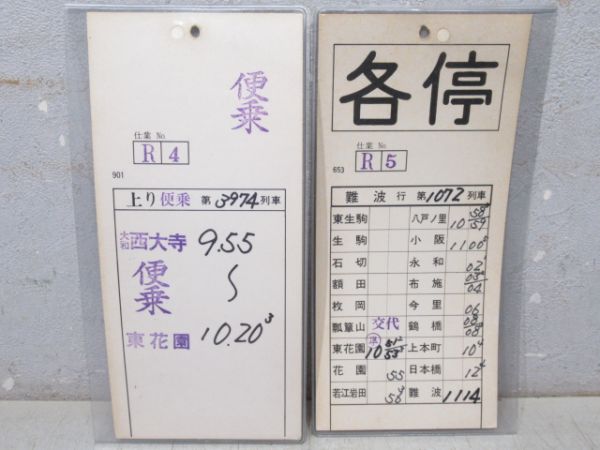 便乗
仕業 No
R 4
901
上り便乗 第3974列車
大和西大寺 9.55
便乗 〜
東花園 10.20³
各停
仕業 No
R 5
653
難波行 第1072列車
東生駒 八戸ノ里 10 58 59
生駒 小阪 11 00
石切 永和 02
額田 布施 03 04
枚岡 今里 06
瓢簞山 交代 鶴橋 08 08
東花園 準 10 51 53 上本町 10⁴
花園 55 日本橋 12
若江岩田 56 難波 11 14